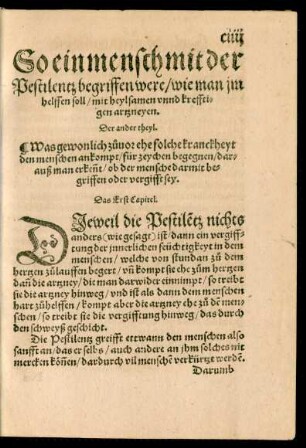 ciiij
So ein mensch mit der
Pestilentz begriffen were/ wie man jm
helffen soll/ mit heylsamen vnnd krefftigen
artzneyen.
Der ander theyl.
¶ Was gewonlich zůuor ehe solche kranckheyt
den menschen ankompt/ für zeychen begegnen/ dar-
auß man erkeñt/ ob der mensche darmit be-
griffen oder vergifft sey.
Das Erst Capitel.
DJeweil die Pestilētz nichts
anders (wie gesagt) ist/ dann ein vergiff-
tung der innerlichen feüchtigkeyt in dem
menschen/ welche von stundan zů dem
hertzen zůlauffen begert/ vñ kompt sie ehe zům hertzen
dañ die artzney/ die man darwider einnimpt/ so treibt
sie die artzney hinweg/ vnd ist als dann dem menschen
hart zů helffen/ kompt aber die artzney ehe zů dē men-
schen/ so treibt sie die vergifftung hinweg/ das durch
den schweyß geschicht.
Die Pestilentz greifft ettwann den menschen also
sanfft an/ das er selbs/ auch andere an jhm solches nit
mercken köñen/ dardurch vil menschē verkürtzt werdē.
Darumb